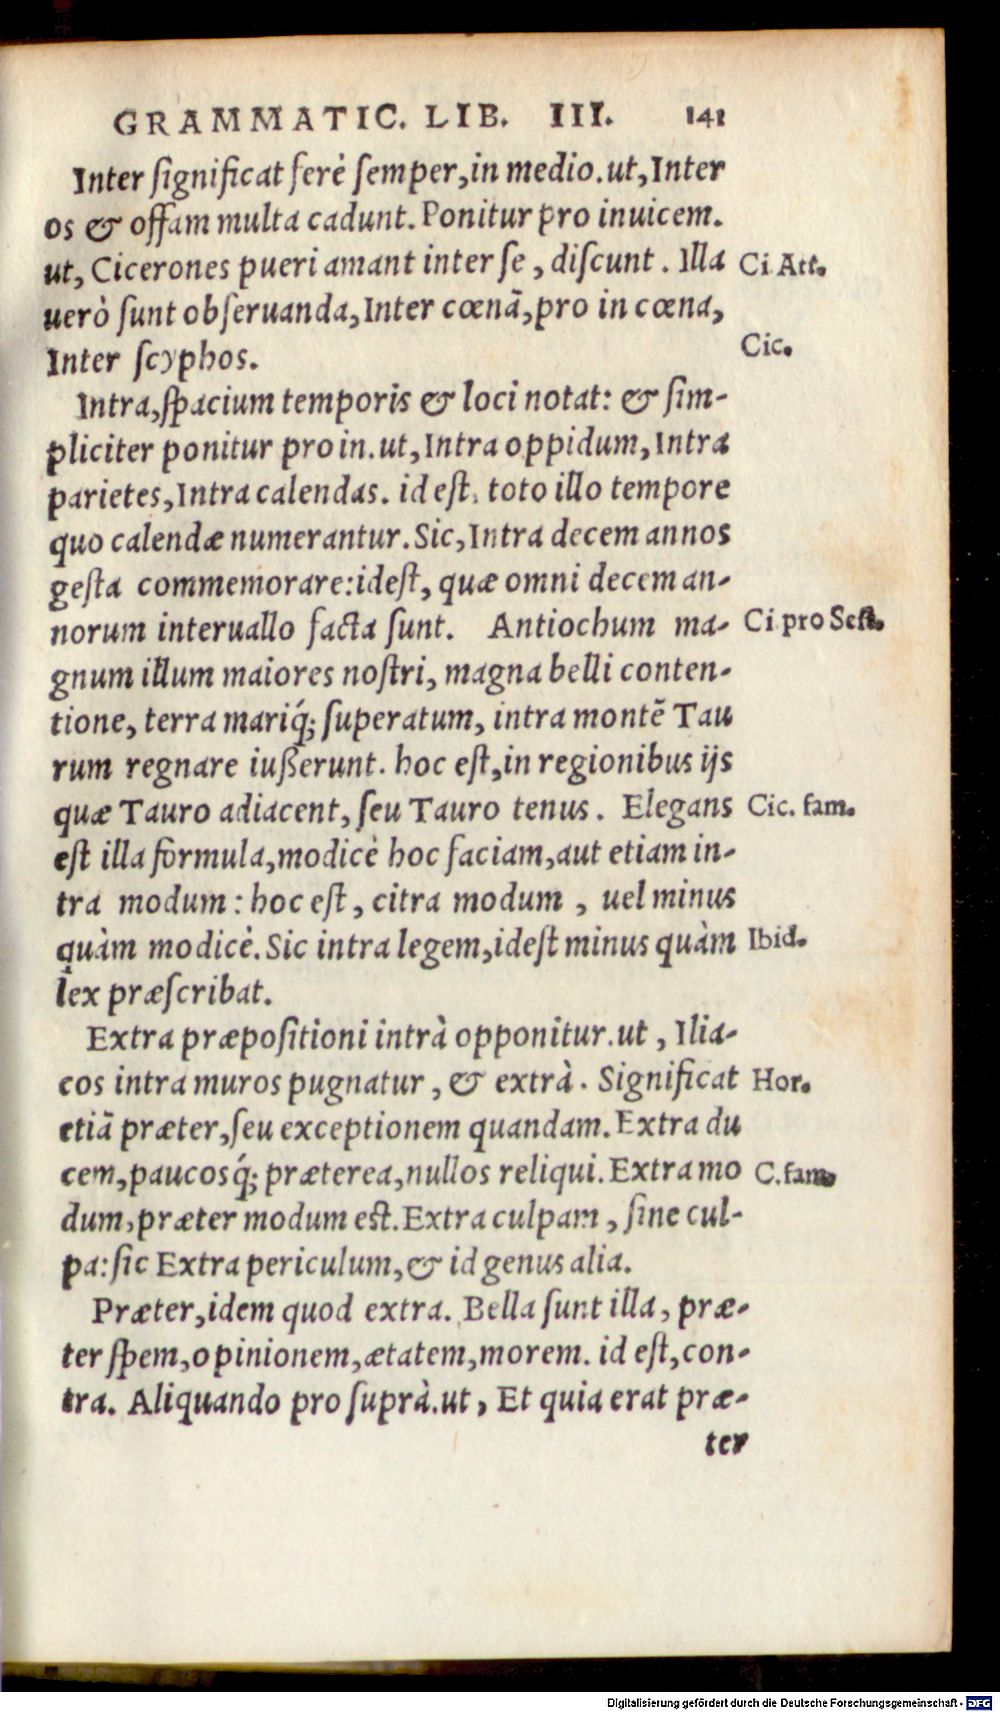 GRAMMATIC. LIB. III. 141
Inter ſignificat ferè ſemper,in medio.ut,Inter
os & offam multa cadunt.Ponitur pro inuicem.
ut, Cicerones pueri amant inter ſe , diſcunt . Illa Ci Att.
uerò ſunt obſeruanda,Inter cœnã,pro in cœna,
Inter ſcyphos. Cic.
Intra,ſpacium temporis & loci notat: & ſim-
pliciter ponitur pro in.ut,Intra oppidum,Intra
parietes,Intra calendas. id eſt, toto illo tempore
quo calendæ numerantur.Sic,Intra decem annos
geſta commemorare:ideſt, quæ omni decem an-
norum interuallo facta ſunt. Antiochum ma- Ci pro Seſt.
gnum illum maiores noſtri, magna belli conten-
tione, terra mariq́; ſuperatum, intra montẽ Tau
rum regnare iußerunt. hoc eſt,in regionibus ijs
quæ Tauro adiacent, ſeu Tauro tenus . Elegans Cic. fam.
eſt illa formula,modicè hoc faciam,aut etiam in-
tra modum : hoc eſt , citra modum , uel minus
quàm modicè.Sic intra legem,ideſt minus quàm Ibid.
lex præſcribat.
Extra præpoſitioni intrà opponitur.ut , Ilia-
cos intra muros pugnatur , & extrà . Significat Hor.
etiã præter,ſeu exceptionem quandam.Extra du
cem,paucosq́; præterea,nullos reliqui.Extra mo C.fam.
dum,præter modum eſt.Extra culpam , ſine cul-
pa:ſic Extra periculum,& id genus alia.
Præter,idem quod extra. Bella ſunt illa, præ-
ter ſpem,opinionem,ætatem,morem. id eſt,con-
tra. Aliquando pro ſuprà.ut , Et quia erat præ-
ter
Digitalisierung gefördert durch die Deutsche Forschungsgemeinschaft - DFG